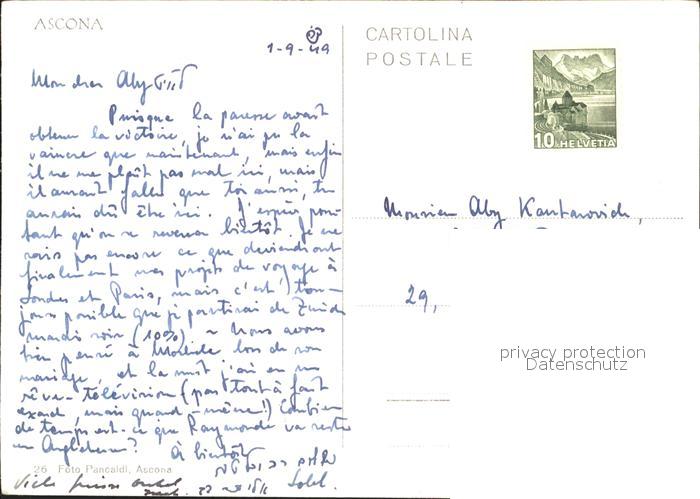 ASCONA
1-9-49
Mon cher Aby
Puisque la paresse avait
obtenu la victoire, je n'ai pu la
vaincre que maintenant, mais enfin
il ne me plaît pas mal ici, mais
il aurait fallu que toi aussi, tu
aurais dû être ici. J'espère pour-
tant qu'on se reverra bientôt. Je ne
sais pas encore ce que deviendront
finalement nos projets de voyage à
Londres et Paris, mais c'est tou-
jours possible que je partirai de Zürich
mardi soir (10%) ~ Nous avons
bien pensé à lors de son
mariage, et la nuit j'ai eu un
rêve-télévision (pas tout à fait
exact, mais quand-même!) Combien
de temps est-ce que Raymonde va rester
en Angleterre?
À bientôt
26 Foto Pancaldi, Ascona
CARTOLINA
POSTALE
10 HELVETIA
Monsieur Aby Kantarovich,
29,
privacy protection
Datenschutz